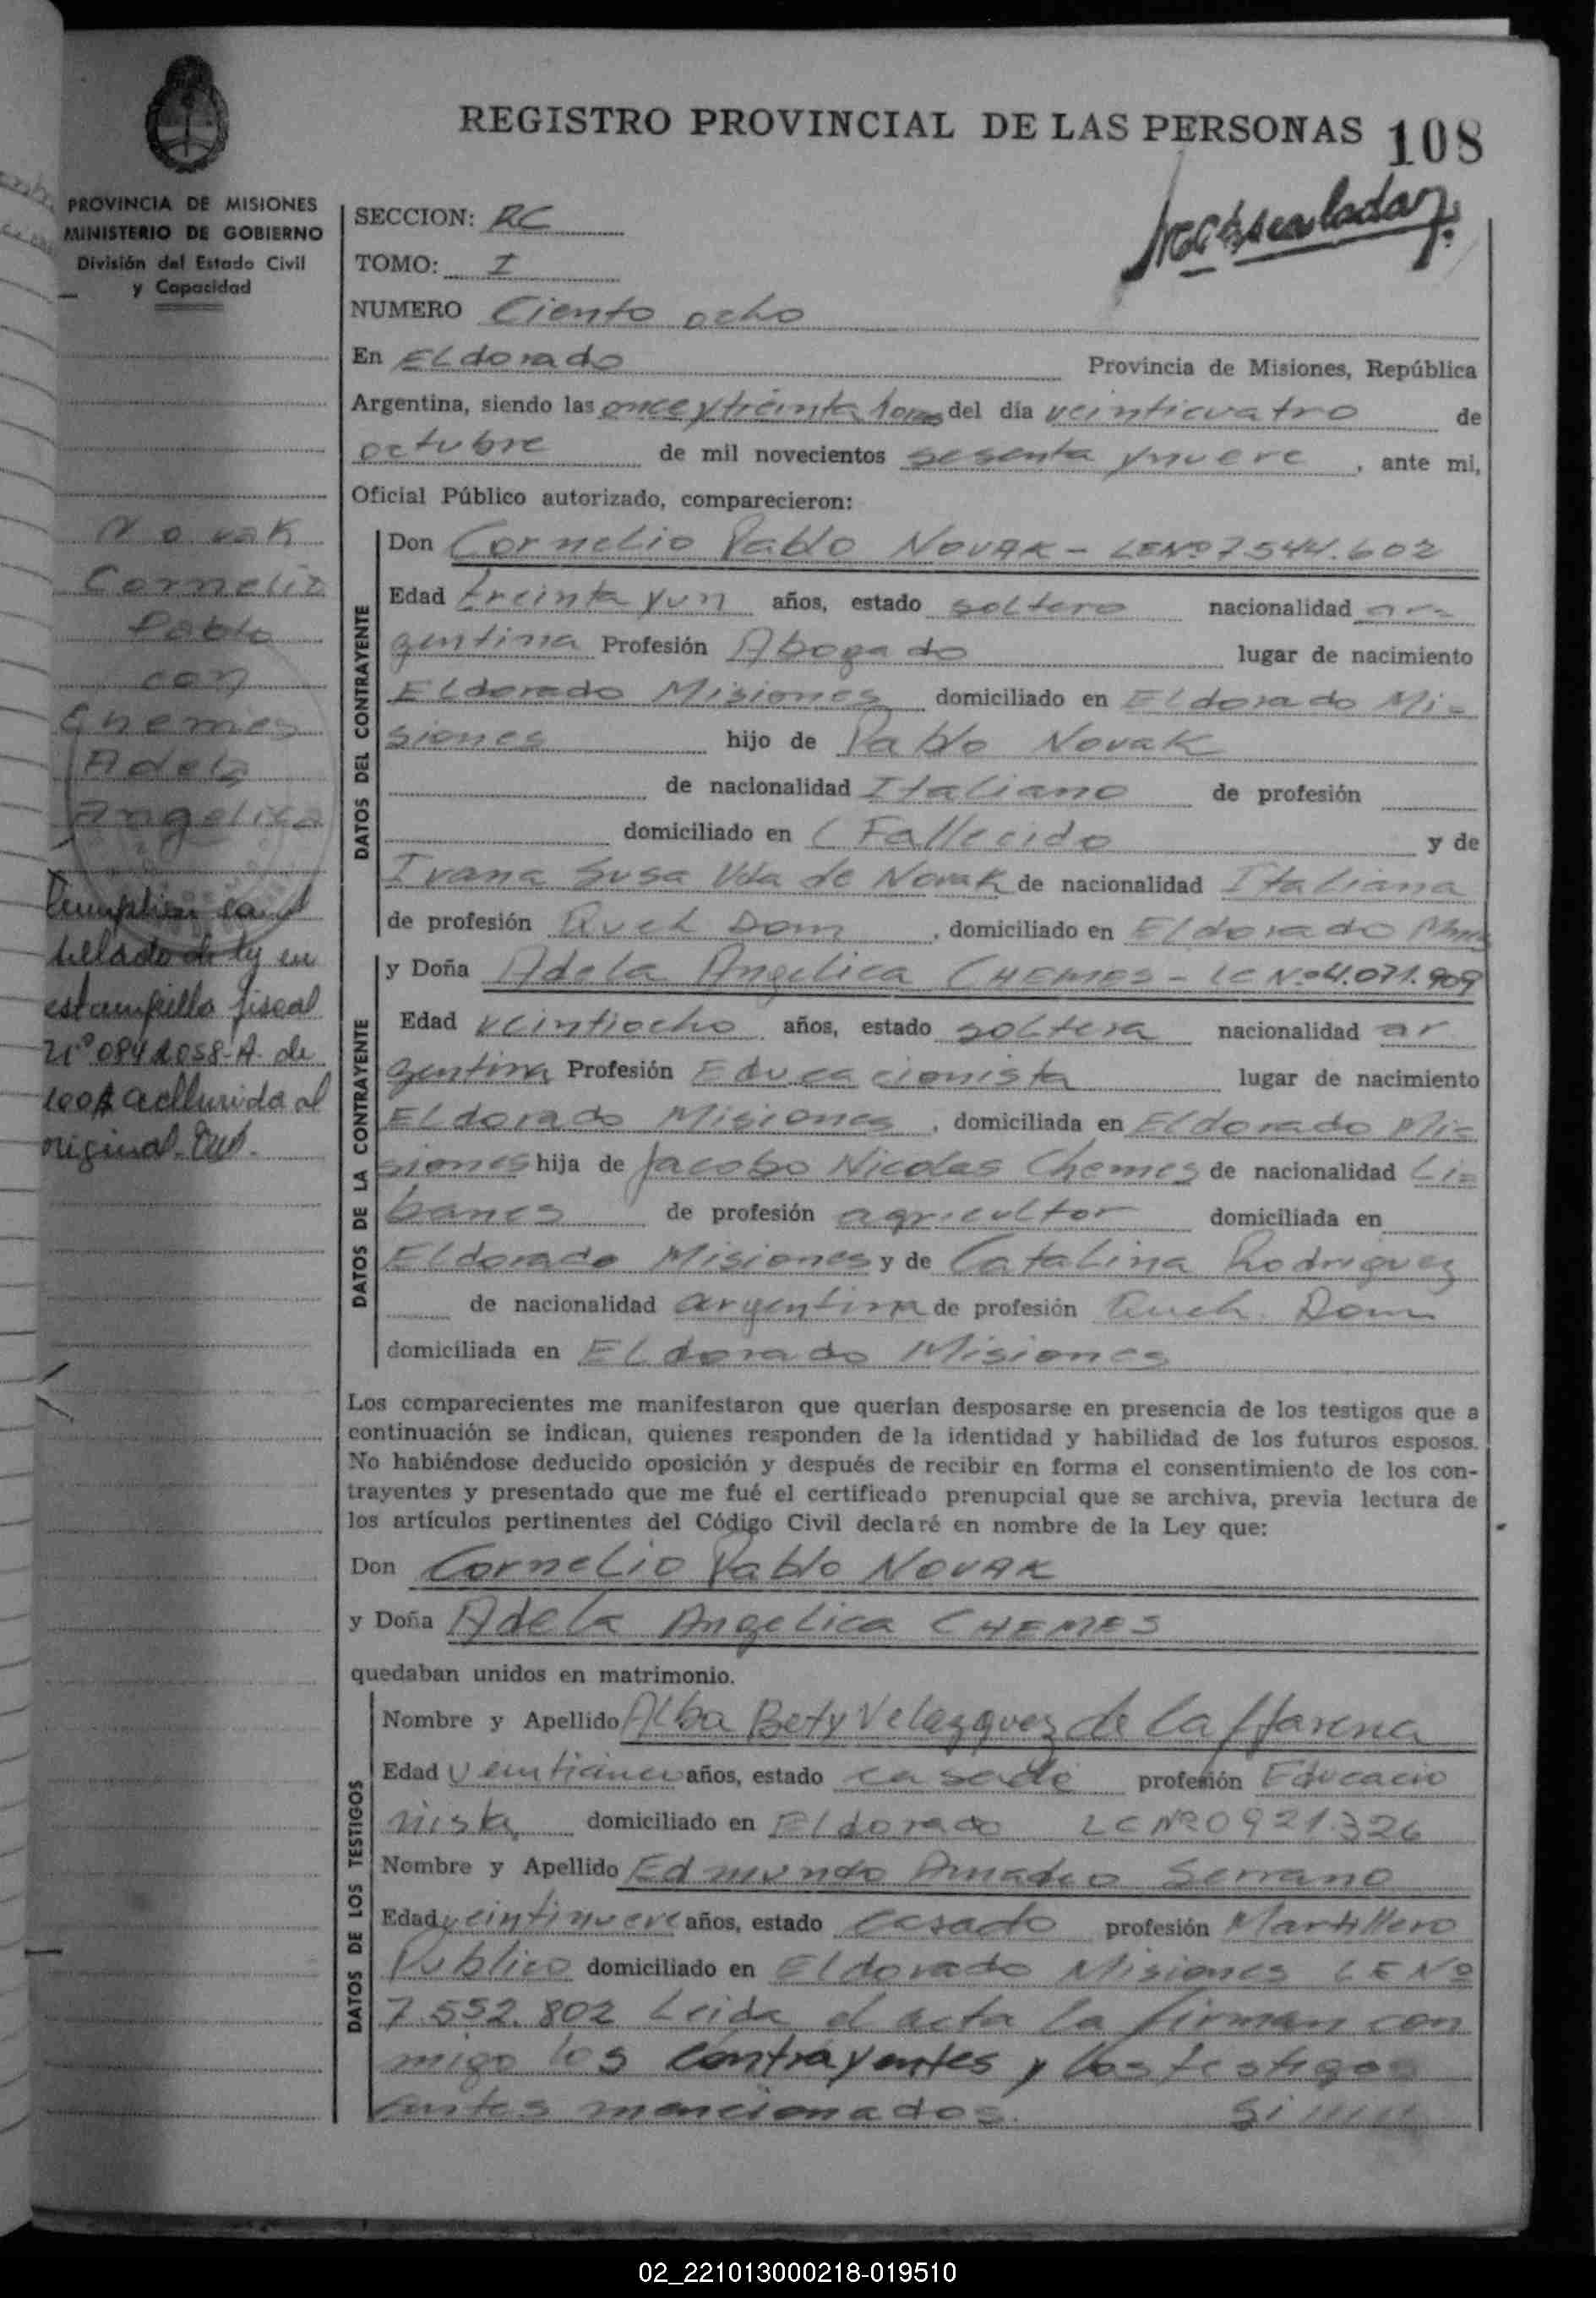 REGISTRO PROVINCIAL DE LAS PERSONAS 108
PROVINCIA DE MISIONES
MINISTERIO DE GOBIERNO
División del Estado Civil
y Capacidad
SECCION: RC
TOMO: I
NUMERO Ciento ocho
En Eldorado Provincia de Misiones, República
Argentina, siendo las once y treinta horas del día veinticuatro de
octubre de mil novecientos sesenta y nueve, ante mi,
Oficial Público autorizado, comparecieron:
Novak
Cornelio
Pablo
con
Chemes
Adela
Angelica
DATOS DEL CONTRAYENTE
Don Cornelio Pablo NOVAK - LE Nº 7544.602
Edad treinta y un años, estado soltero nacionalidad ar-
gentina Profesión Abogado lugar de nacimiento
Eldorado Misiones domiciliado en Eldorado Mi-
siones hijo de Pablo Novak
de nacionalidad Italiano de profesión
domiciliado en (Fallecido y de
Ivana Susa Vda de Novak de nacionalidad Italiana
de profesión Queh Dom, domiciliado en Eldorado
en
estampilla fiscal
nº 0841058-A de
100$ al
original
DATOS DE LA CONTRAYENTE
y Doña Adela Angelica CHEMES - LC Nº 4.071.909
Edad veintiocho años, estado soltera nacionalidad ar
gentina Profesión Educacionista lugar de nacimiento
Eldorado Misiones, domiciliada en Eldorado Mi-
siones hija de Jacobo Nicolas Chemes de nacionalidad Li-
banes de profesión agricultor domiciliada en
Eldorado Misiones y de Catalina Rodriguez
de nacionalidad argentina de profesión Queh. Dom
domiciliada en Eldorado Misiones
Los comparecientes me manifestaron que querían desposarse en presencia de los testigos que a
continuación se indican, quienes responden de la identidad y habilidad de los futuros esposos.
No habiéndose deducido oposición y después de recibir en forma el consentimiento de los con-
trayentes y presentado que me fué el certificado prenupcial que se archiva, previa lectura de
los artículos pertinentes del Código Civil declaré en nombre de la Ley que:
Don Cornelio Pablo NOVAK
y Doña Adela Angelica CHEMES
quedaban unidos en matrimonio.
DATOS DE LOS TESTIGOS
Nombre y Apellido Alba Bety Velazquez de
Edad años, estado casada profesión Educacio
nista domiciliado en Eldorado LC Nº 0921.326
Nombre y Apellido Edmundo Amadeo Serrano
Edad veintinueve años, estado casado profesión Martillero
Publico domiciliado en Eldorado Misiones LE Nº
7.552.802 Leida el acta la firman con
migo los contrayentes y los testigos
antes mencionados.
02_221013000218-019510